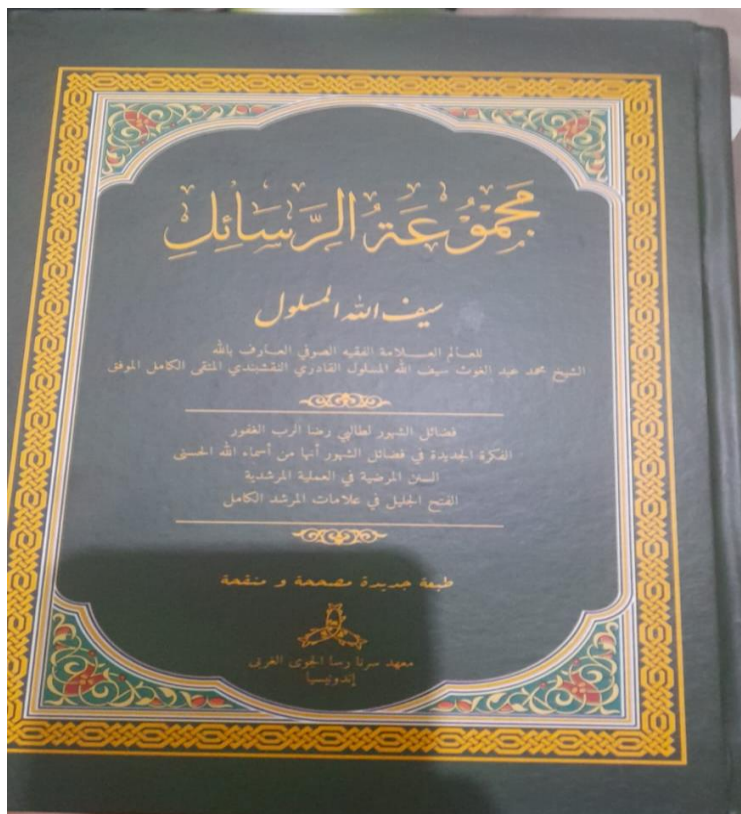 مَجْمُوْعَةُ الرَّسَائِلِ
سيف الله المسلول
للعالم العلامة الفقيه الصوفي العارف بالله
الشيخ محمد عبد الغوث سيف الله المسلول القادري النقشبندي المنتقى الكامل الموفق
فضائل الشهور لطالبي رضا الرب الغفور
الفكرة الجديدة في فضائل الشهور أنها من أسماء الله الحسنى
السنن المرضية في العملية المرشدية
الفتح الجليل في علامات المرشد الكامل
طبعة جديدة مصححة و منقحة
معهد سرنا رسا الجوى الغربى
إندونيسيا